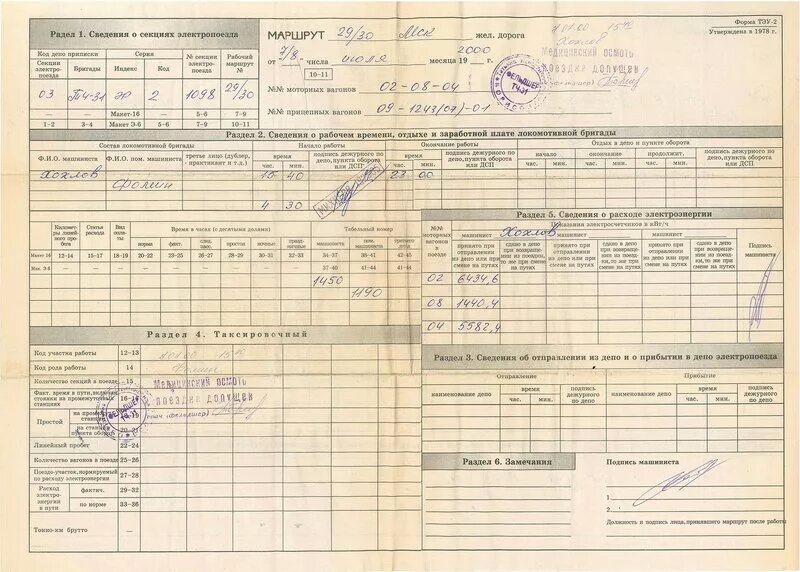 Форма ТЭУ-2
Утверждена в 1978 г.
Радел 1. Сведения о секциях электропоезда
МАРШРУТ 29/30 Мск жел. дорога
от 7/8 числа июля месяца 2000 19 г.
10-11
№№ моторных вагонов 02-08-04
№№ прицепных вагонов 09-1243(07)-01
Хохлов
Медицинский осмотр
поездке допущен
ФЕЛЬДШЕР
ТЧ-31
Код депо приписки Серия № секции электропоезда Рабочий маршрут №
Секции электропоезда Бригады Индекс Код
03 ТЧ-31 ЭР 2 1098 29/30
— — Макет-16 — 5-6 7-9
1-2 3-4 Макет Э-6 5-6 7-9 10-11
Раздел 2. Сведения о рабочем времени, отдыхе и заработной плате локомотивной бригады
Состав локомотивной бригады Начало работы Окончание работы Отдых в депо и пункте оборота
Ф.И.О. машиниста Ф.И.О. пом. машиниста третье лицо (дублер, практикант и т.д.) время час. мин. подпись дежурного по депо, пункта оборота или ДСП время час. мин. подпись дежурного по депо, пункта оборота или ДСП начало час. мин. окончание час. мин. продолжит. час. мин. подпись дежурного по депо, пункта оборота или ДСП
Хохлов Фомин 15 40 23 00
4 30
Километры линейного пробега Статья расхода Вид оплаты Время в часах (с десятыми долями) Табельный номер
норма факт. простоя ночные машиниста пом. машиниста третьего лица
Макет 16 12-14 15-17 18-19 20-22 23-25 26-28 29-30 31-32 33 34-37 38-41 42-45
Мак. Э-6 37-40 41-44 41-44
1450
1190
Раздел 5. Сведения о расходе электроэнергии
№№ моторных вагонов в поезде Показания электросчетчиков в кВт/ч
машинист Хохлов машинист Подпись машиниста
принято при отправлении из депо или при смене на путях сдано в депо при возвращении из поездки, то же при смене на путях принято при отправлении из депо или при смене на путях сдано в депо при возвращении из поездки, то же при смене на путях
02 6434,6
08 1440,4
04 5582,4
Раздел 4. Таксировочный
Код участка работы 12-13
Код рода работы 14
Количество секций в поезде 15
Факт. время в пути, включая стоянки на промежуточных станциях 16-
Простой
Линейный пробег 22-24
Количество вагонов в поезде 25-26
Поездо-участок, нормируемый по расходу электроэнергии 27-28
Расход электроэнергии в пути фактич. 29-32
по норме 33-36
Тонно-км брутто —
Фомин
Медицинский осмотр
поездке допущен
Врач (фельдшер)
ФЕЛЬДШЕР
Раздел 3. Сведения об отправлении из депо и о прибытии в депо электропоезда
Отправление Прибытие
наименование депо время час. мин. подпись дежурного по депо наименование депо время час. мин. подпись дежурного по депо
Раздел 6. Замечания
Подпись машиниста
1.
2.
Должность и подпись лица, принявшего маршрут после работы